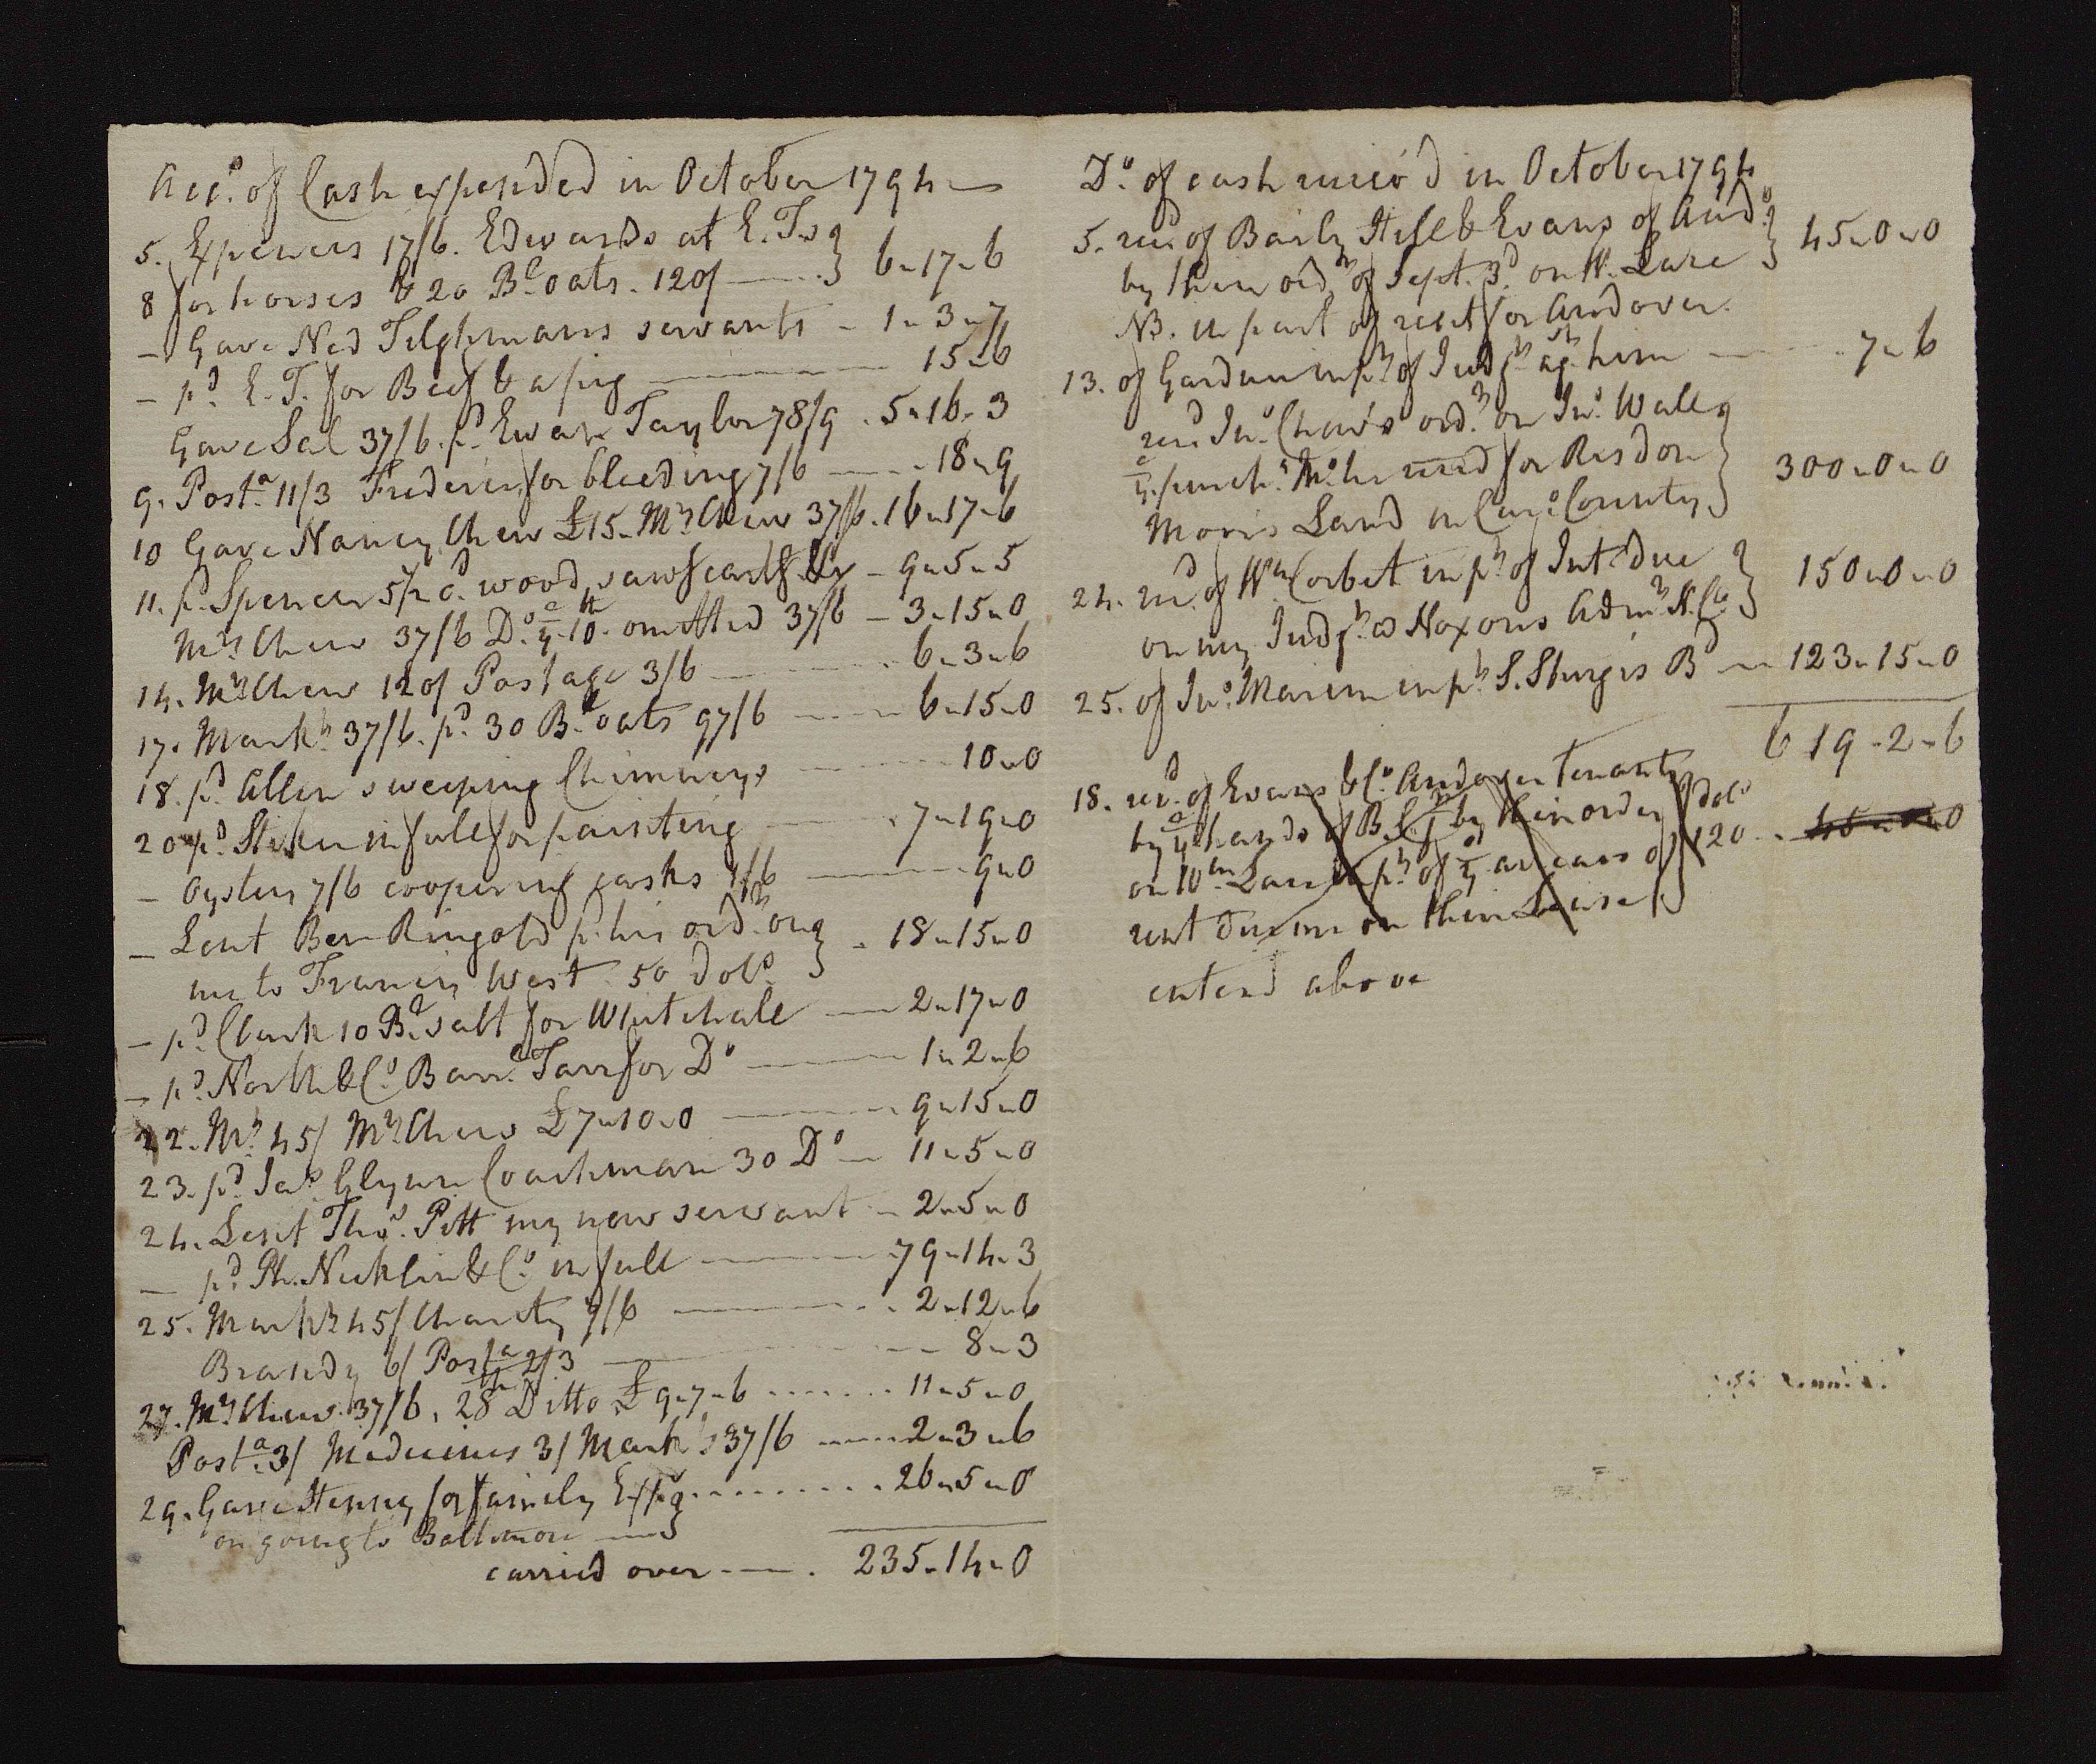 Acc.t of Cash expended in October 1794
5. Expences 17/6. Edwards at E. Ts
8 for horses & 20 B.l oats. 120/ 6-17-6
- Gave Ned Tilghmans servants - 1-3-7
- p.d E. T. for Beef & a pig 15-6
Gave Sal 37/6. p.d Ewan Taylor 78/9. 5-16-3
9. Post.a 11/3 Frederic for bleeding 7/6 18-9
10 Gave Nancy Chew £15. M.rs Chew 37/6. 16-17-6
11. p.d Spencer 5/ c.d wood, saw.g cart.g &c - 9-5-5
M.rs Chew 37/6 D.o y.e 10.th omitted 37/6 - 3-15-0
14. M.rs Chew 120/ Postage 3/6 6-3-6
17. Mark.t 37/6. p.d 30 B.l oats 97/6 6-15-0
18. p.d Allen sweeping Chimneys 10-0
20 p.d Stiker in full for painting 7-19-0
- Oysters 7/6 coopering casks 1/6 9-0
- Lent Ben Ringold p. his ord.r on
me to Francis West. 50 dol.s 18-15-0
- p.d Clark 10 B.l salt for Whitehall 2-17-0
- p.d North & C.o Barr.l Tarr for D.o 1-2-6
22. M.t 45/ M.rs Chew £7-10-0 9-15-0
23. p.d Ja.s Glynn Coachman 30 D.o 11-5-0
24. Lent Tho.s Pitt my new servant - 2-5-0
- p.d Ph. Nicklin & C.o in full 79-14-3
25. Mark.t 45/ Charity 7/6 2-12-6
Brandy 6/ Post.a 2/3 8-3
27. M.rs Chew 37/6, 28th Ditto £9-7-6 11-5-0
Post.a 3/ Medicines 3/ Mark.t 37/6 2-3-6
29. Gave Henny for family Exp.s 26-5-0
on going to Baltimore
carried over 235-14-0
D.o of cash receiv'd in October 1794
5. rec.d of Baily Hill & Evans of And.o
by their ord.r of Sept. 3.d on W. Lane 45-0-0
NB. in part of rent for Andover.
13. of Gardner in p.t of Judg.t ag.st him 7-6
rec.d Jn.o Chew's ord.r on Jn.o Wall
y.e purch.e M.o he rec.d for Risdon
Moores Land in Car.o County 300-0-0
24. rec.d of W.m Corbet in p.t of Int. due
on my Judg.t vs Noxons Adm.r N. Ca 150-0-0
25. of Jn.o Marim in p.t S. Sturgis B.d 123-15-0
619-2-6
18. rec.d of Evans & C.o Andover tenants
by y.e hands of B. C. j.r by their order dol.s
on W.m Lane in p.t of y.e arrears of 120 45-0-0
rent due me on their Lease
enterd above